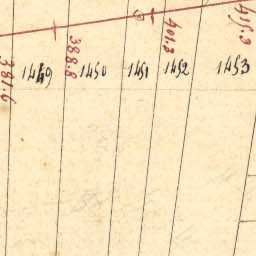 381.6
1449
388.8
1450
1451
401.3
1452
415.3
1453